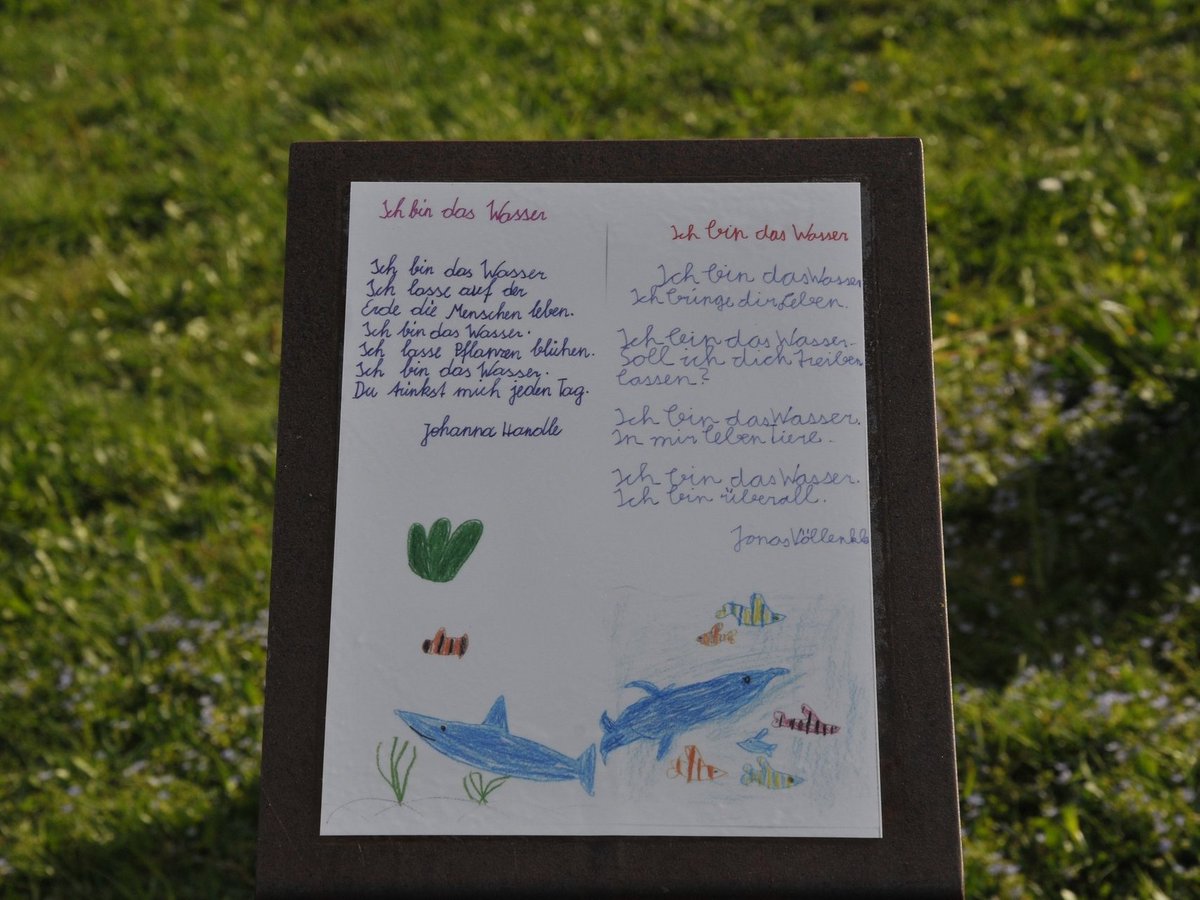 Ich bin das Wasser
Ich bin das Wasser
Ich lasse auf der
Erde die Menschen leben.
Ich bin das Wasser.
Ich lasse Pflanzen blühen.
Ich bin das Wasser.
Du trinkst mich jeden Tag.
Johanna Handle
Ich bin das Wasser
Ich bin das Wasser
Ich bringe dir Leben.
Ich bin das Wasser.
Soll ich dich treiben
lassen?
Ich bin das Wasser.
In mir leben Tiere.
Ich bin das Wasser.
Ich bin überall.
Jonas